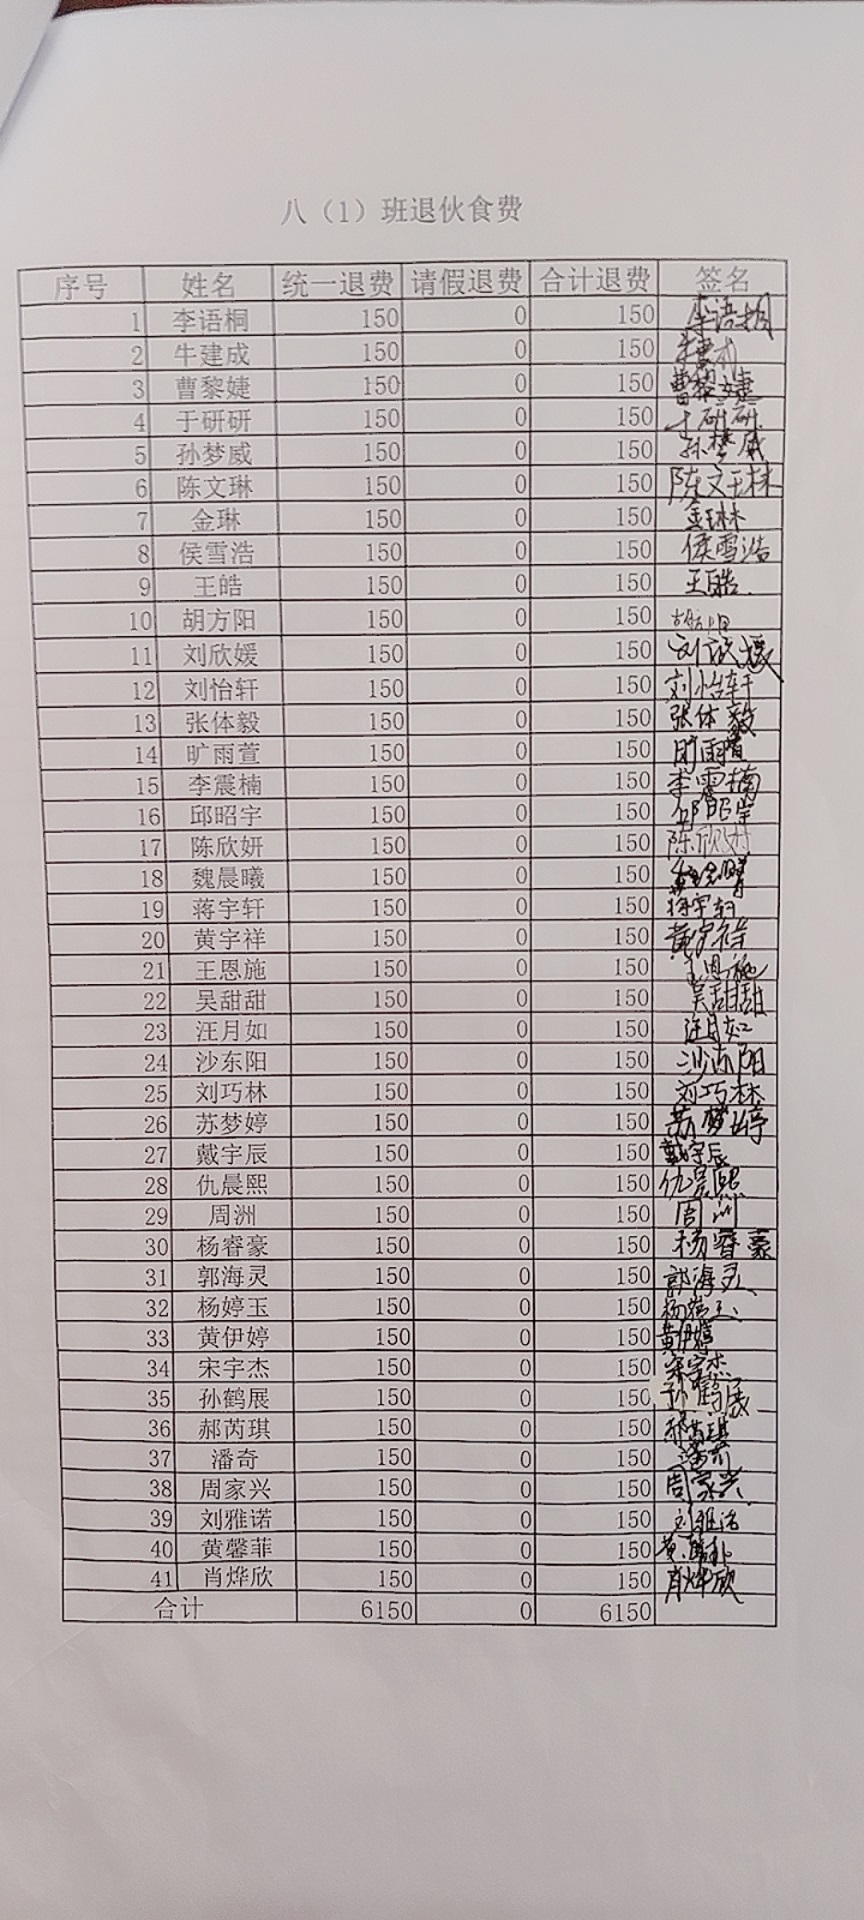 八（1）班退伙食费
序号 姓名 统一退费 请假退费 合计退费 签名
1 李语桐 150 0 150 李语桐
2 牛建成 150 0 150
3 曹黎婕 150 0 150 曹黎婕
4 于研研 150 0 150 于研研
5 孙梦威 150 0 150 孙梦威
6 陈文琳 150 0 150 陈文琳
7 金琳 150 0 150 金琳
8 侯雪浩 150 0 150 侯雪浩
9 王皓 150 0 150 王皓
10 胡方阳 150 0 150
11 刘欣媛 150 0 150 刘欣媛
12 刘怡轩 150 0 150 刘怡轩
13 张体毅 150 0 150 张体毅
14 旷雨萱 150 0 150 旷雨萱
15 李震楠 150 0 150 李震楠
16 邱昭宇 150 0 150 邱昭宇
17 陈欣妍 150 0 150 陈欣妍
18 魏晨曦 150 0 150
19 蒋宇轩 150 0 150 蒋宇轩
20 黄宇祥 150 0 150 黄宇祥
21 王恩施 150 0 150 王恩施
22 吴甜甜 150 0 150 吴甜甜
23 汪月如 150 0 150 汪月如
24 沙东阳 150 0 150 沙东阳
25 刘巧林 150 0 150 刘巧林
26 苏梦婷 150 0 150 苏梦婷
27 戴宇辰 150 0 150 戴宇辰
28 仇晨熙 150 0 150 仇晨熙
29 周洲 150 0 150 周洲
30 杨睿豪 150 0 150 杨睿豪
31 郭海灵 150 0 150 郭海灵
32 杨婷玉 150 0 150 杨婷玉
33 黄伊婷 150 0 150 黄伊婷
34 宋宇杰 150 0 150 宋宇杰
35 孙鹤展 150 0 150 孙鹤展
36 郝芮琪 150 0 150 郝芮琪
37 潘奇 150 0 150 潘奇
38 周家兴 150 0 150 周家兴
39 刘雅诺 150 0 150 刘雅诺
40 黄馨菲 150 0 150 黄馨菲
41 肖烨欣 150 0 150 肖烨欣
合计 6150 0 6150